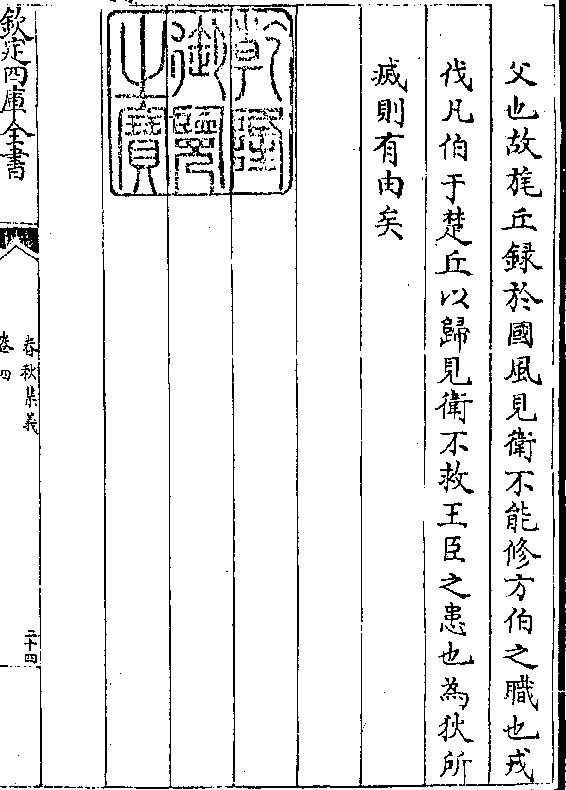 父也故旄丘録於國風見衛不能修方伯之職也戎
伐凡伯于楚丘以歸見衛不救王臣之患也為狄所
滅則有由矣
乾隆御覽之寶
欽定四庫全書
春秋集義
卷四
二十四